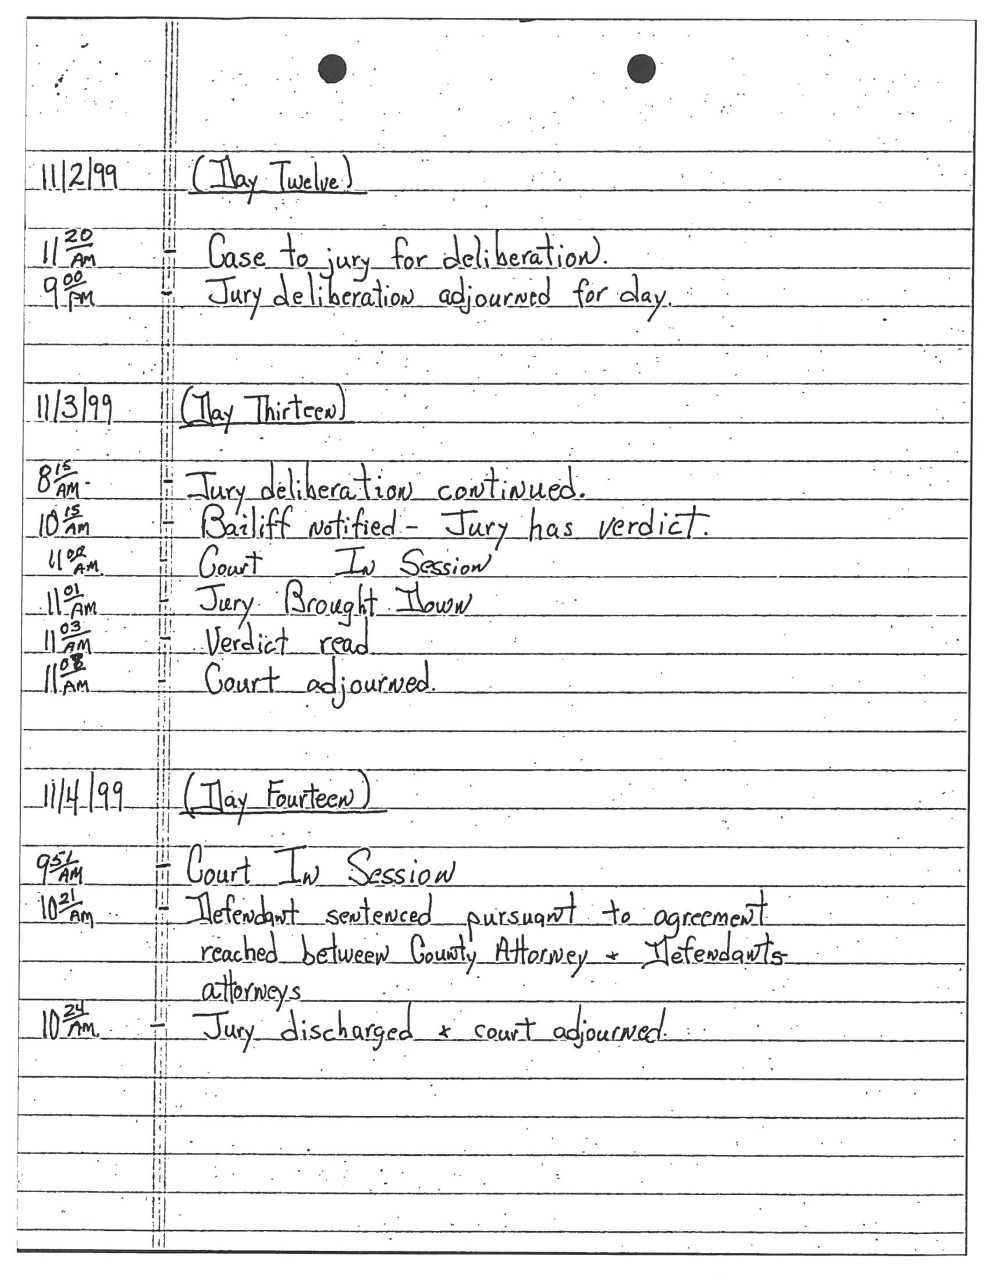 11/2/99 (Day Twelve)
11 20 AM - Case to jury for deliberation.
9 00 PM - Jury deliberation adjourned for day.
11/3/99 (Day Thirteen)
8 15 AM - Jury deliberation continued.
10 15 AM - Bailiff notified - Jury has verdict.
11 00 AM - Court In Session
11 01 AM - Jury Brought Down
11 03 AM - Verdict read
11 08 AM - Court adjourned.
11/4/99 (Day Fourteen)
9 51 AM - Court In Session
10 21 AM - Defendant sentenced pursuant to agreement
reached between County Attorney & Defendants
attorneys
10 24 AM - Jury discharged & court adjourned.